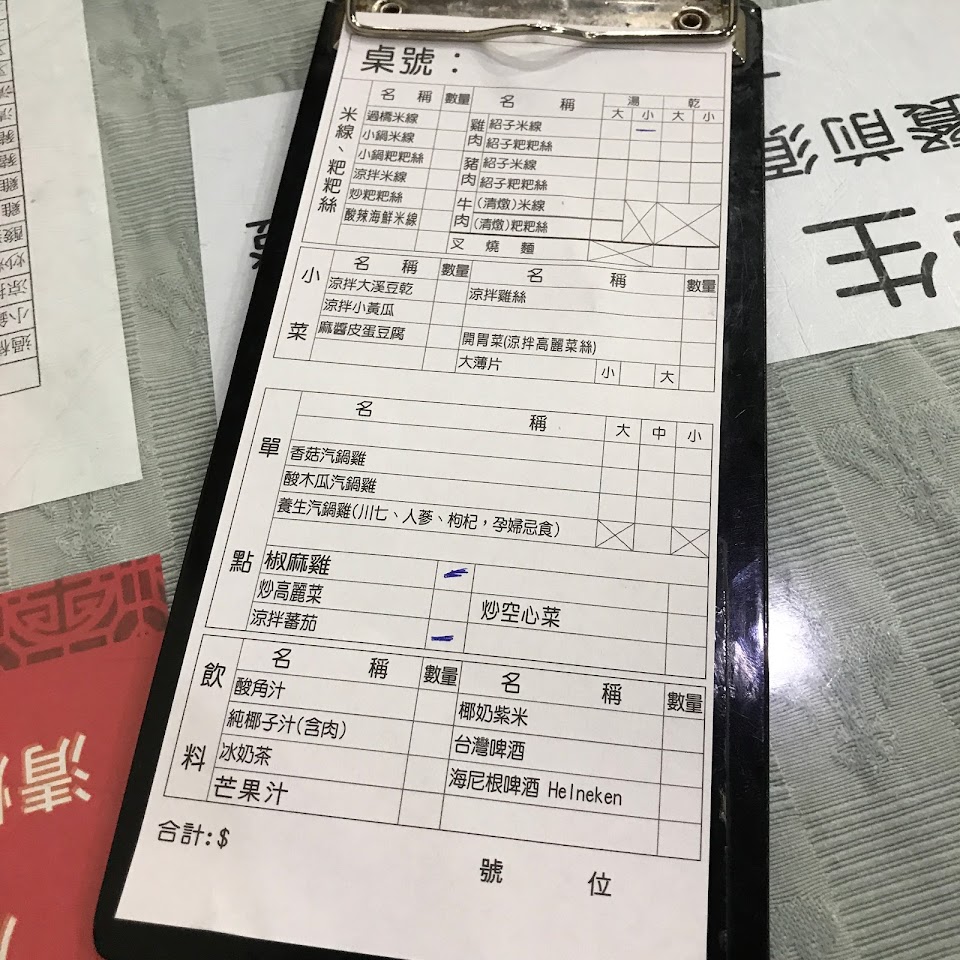 桌號：
米線、粑粑絲
名稱 數量 名稱 湯 乾
大 小 大 小
過橋米線 雞肉 紹子米線
小鍋米線 紹子粑粑絲
小鍋粑粑絲 豬肉 紹子米線
涼拌米線 紹子粑粑絲
炒粑粑絲 牛肉 (清燉)米線
酸辣海鮮米線 (清燉)粑粑絲
叉燒麵
小菜
名稱 數量 名稱 數量
涼拌大溪豆乾 涼拌雞絲
涼拌小黃瓜
麻醬皮蛋豆腐 開胃菜(涼拌高麗菜絲)
大薄片 小 大
單點
名稱 大 中 小
香菇汽鍋雞
酸木瓜汽鍋雞
養生汽鍋雞(川七、人蔘、枸杞，孕婦忌食)
椒麻雞
炒高麗菜 炒空心菜
涼拌蕃茄
飲料
名稱 數量 名稱 數量
酸角汁 椰奶紫米
純椰子汁(含肉) 台灣啤酒
冰奶茶 海尼根啤酒 Heineken
芒果汁
合計:$
號 位
餐前須
生
清